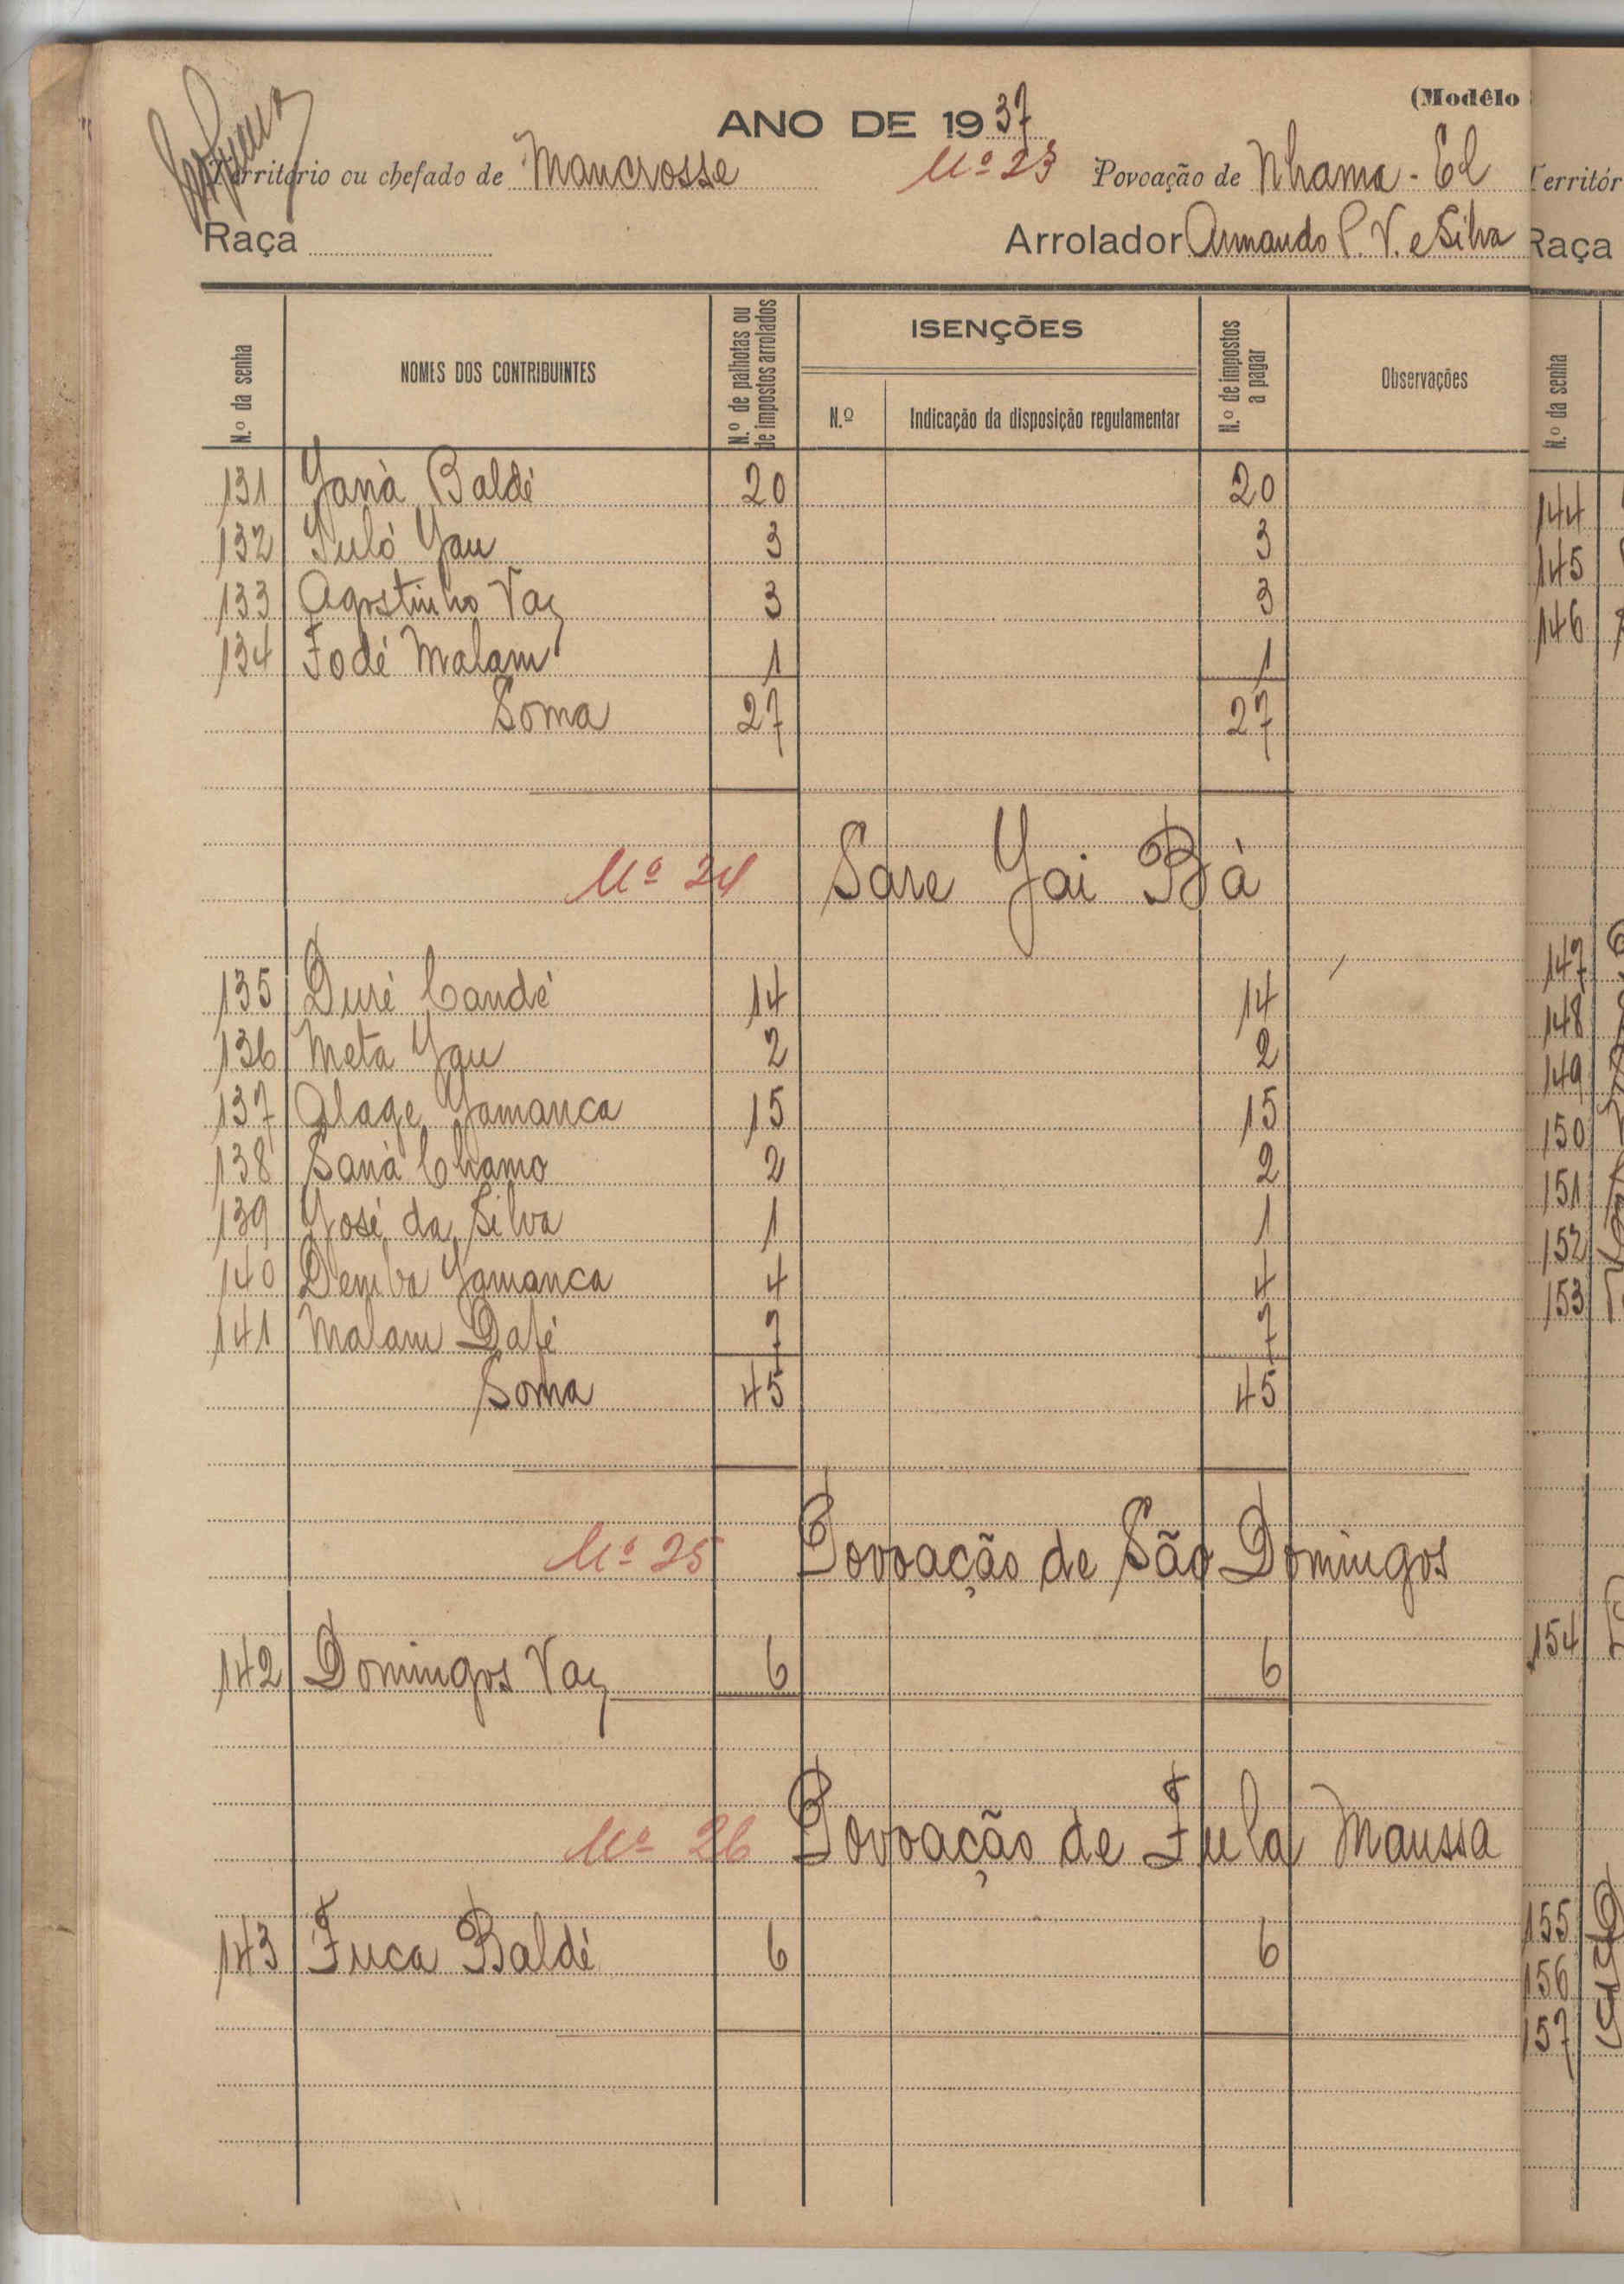 (Modêlo
ANO DE 1937
Território ou chefado de Mancrosse Nº 23 Povoação de Nhama-El
Raça Arrolador Armando P. V. e Silva
N.º da senha NOMES DOS CONTRIBUINTES N.º de palhotas ou de impostos arrolados ISENÇÕES N.º Indicação da disposição regulamentar N.º de impostos a pagar Observações
131 Yanà Baldé 20 20
132 Puló Yau 3 3
133 Agostinho Vaz 3 3
134 Fodé Malam 1 1
Soma 27 27
Nº 24 Sare Yai Bá
135 Duré Candé 14 14
136 Meta Yau 2 2
137 Alage Yamanca 15 15
138 Sanà Chamo 2 2
139 José da Silva 1 1
140 Demba Yamanca 4 4
141 Malam Dafé 7 7
Soma 45 45
Nº 25 Povoação de São Domingos
142 Domingos Vaz 6 6
Nº 26 Povoação de Fula Maussa
143 Fuca Baldé 6 6
Territór
Raça
N.º da senha
144
145
146
147
148
149
150
151
152
153
154
155
156
157